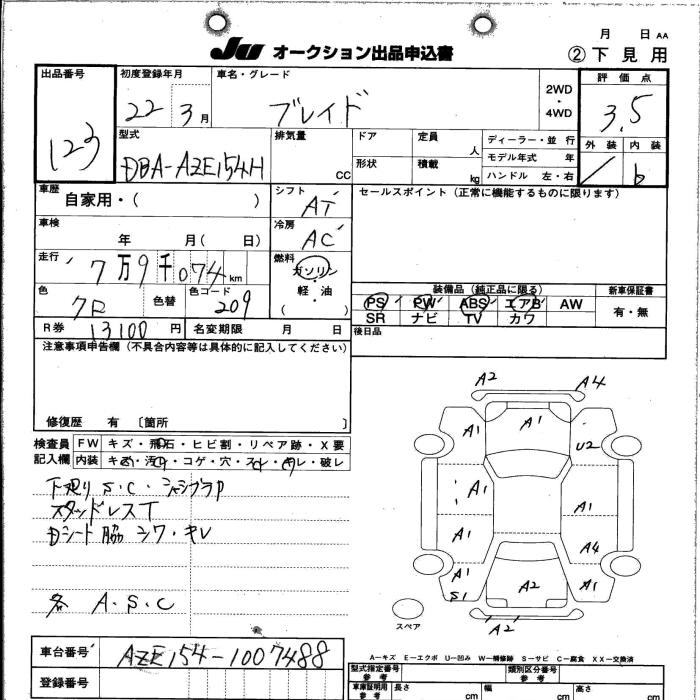 JU オークション出品申込書
月 日 AA
② 下 見 用
出品番号
123
初度登録年月
22 3 月
車名・グレード
ブレイド
2WD
・
4WD
評 価 点
3.5
外 装 内 装
b
型式
DBA-AZE154H
排気量
CC
ドア
形状
定員
人
積載
kg
ディーラー・並 行
モデル年式 年
ハンドル 左・右
車歴
自家用・( )
シフト
AT
セールスポイント (正常に機能するものに限ります)
車検
年 月( 日)
冷房
AC
走行
7万9千074km
燃料
ガソリン
軽・油
( )
色
クロ
色替
色コード
209
装備品 (純正品に限る)
PS PW ABS エアB AW
SR ナビ TV カワ
新車保証書
有・無
R券 13100 円
名変期限 月 日
後日品
注意事項申告欄 (不具合内容等は具体的に記入してください)
修復歴 有 〔箇所 〕
検査員
記入欄
FW キズ・飛石・ヒビ割・リペア跡・X要
内装 キズ・汚レ・コゲ・穴・スレ・キレ・破レ
下廻り S.C・シャシブラP
スタッドレスT
Dシート脇 シワ・キレ
各 A・S・C
A2
A4
A1
A1
U2
A1
A1
A1
A4
A1
S1
A2
A1
A2
スペア
A－キズ E－エクボ U－凹み W－補修跡 S－サビ C－腐食 XX－交換済
車台番号
AZE154-1007488
登録番号
型式指定番号
参 考
類別区分番号
参 考
車庫証明用
参 考
長さ
cm
幅
cm
高さ
cm